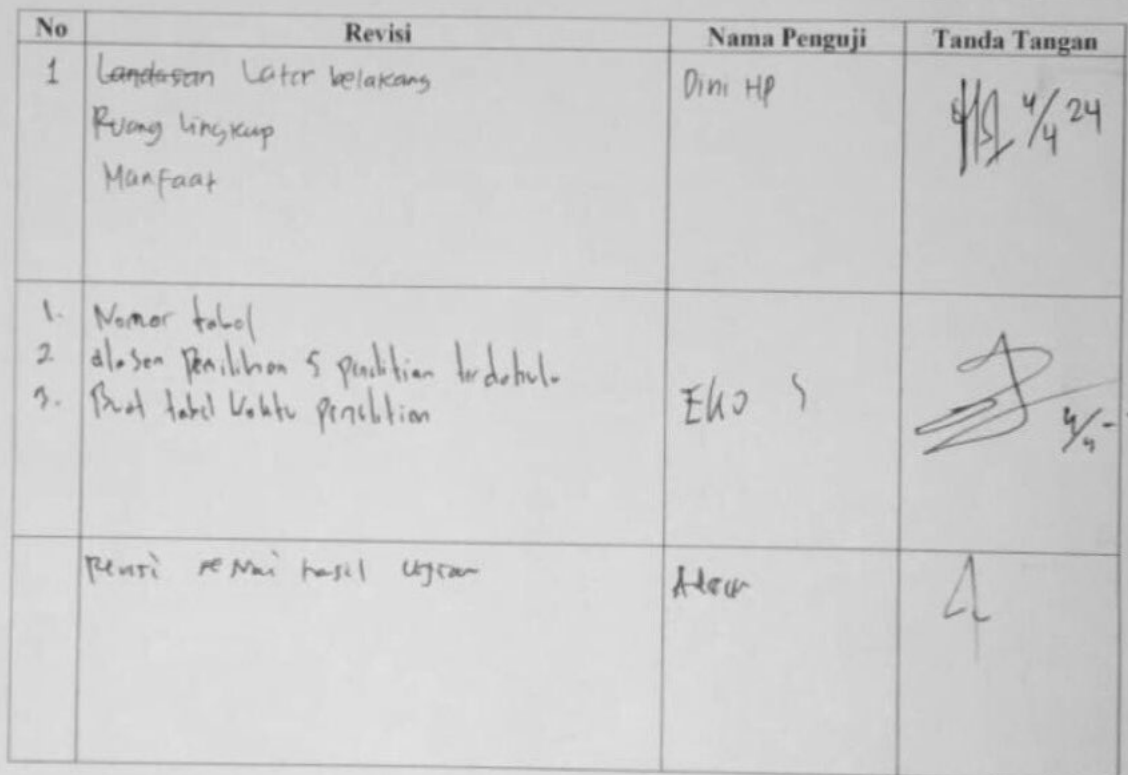 No Revisi Nama Penguji Tanda Tangan
1 Landasan Latar belakang Dini HP 4/4 24
Ruang lingkup
Manfaat
1. Nomor tabel
2 alasan Pemilihan 5 penelitian terdahulu
3. Buat tabel Waktu penelitian Eko S 4/4-
Revisi sesuai hasil Ujian